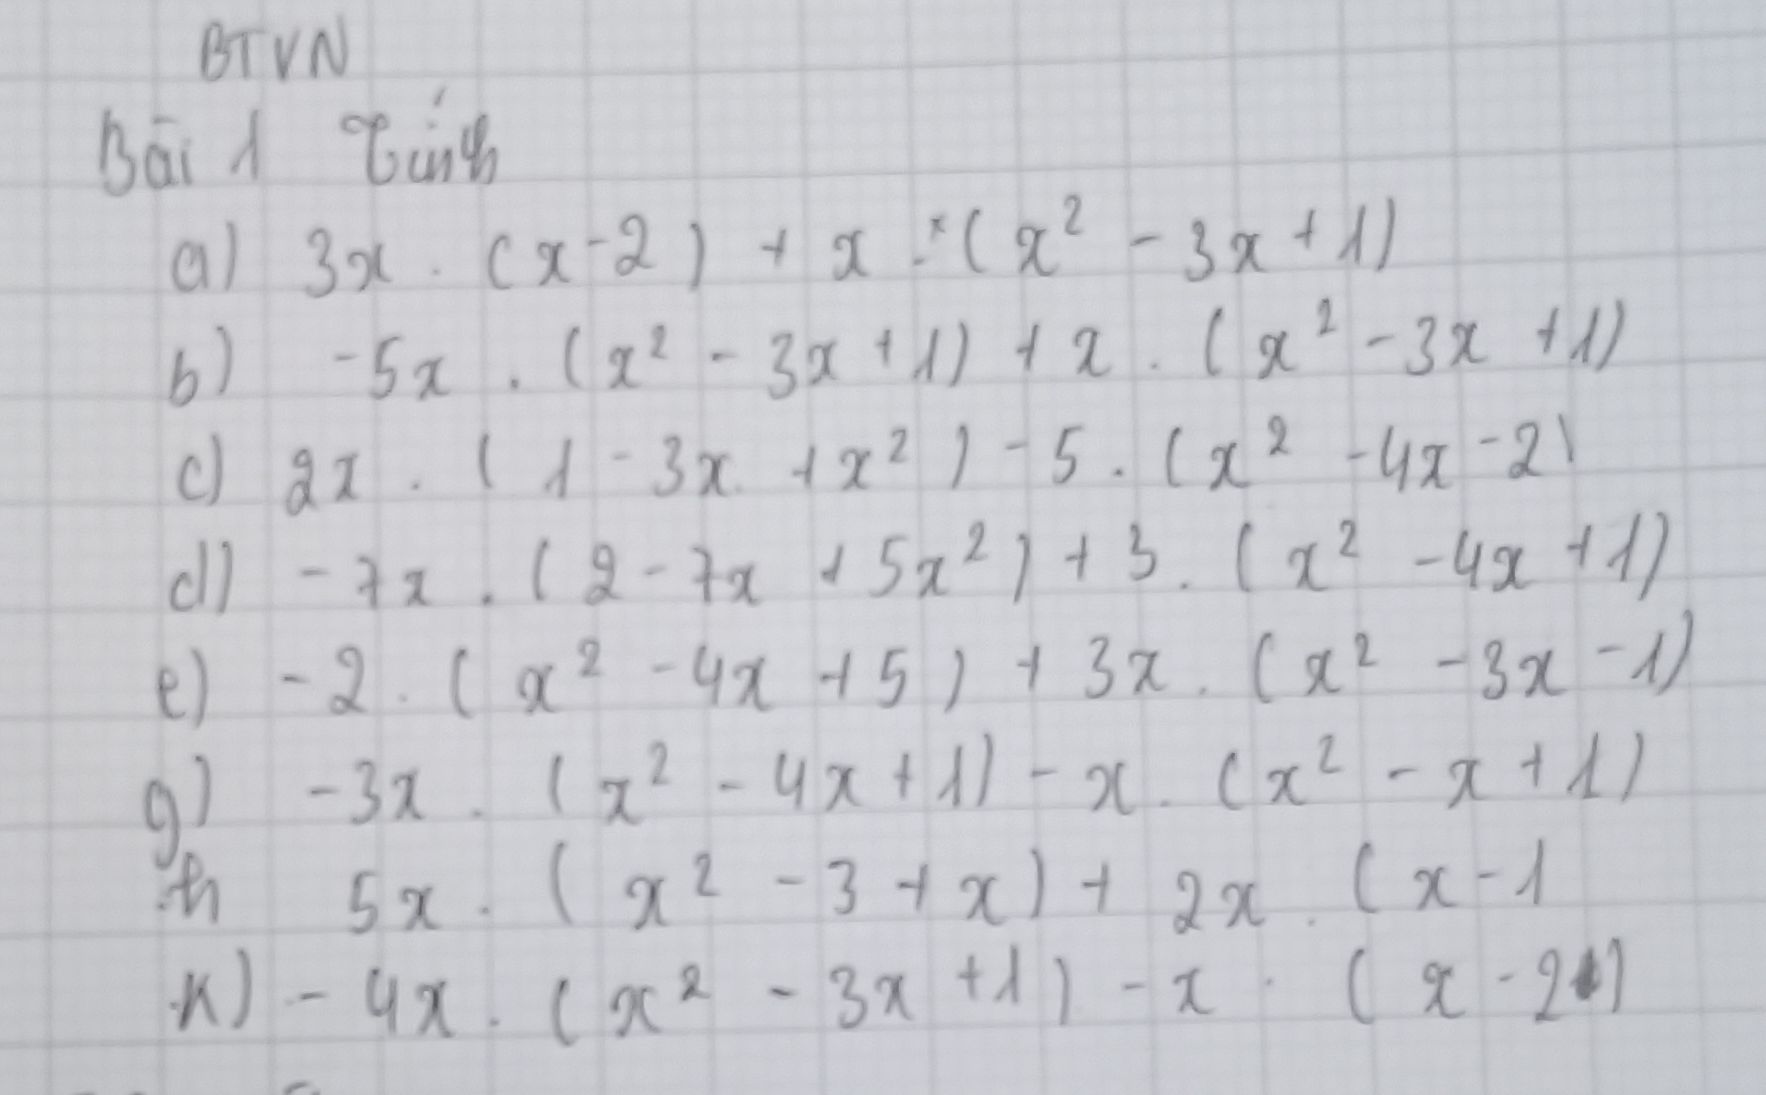 BTVN
Bài 1 Tính
a) 3x . (x-2) + x . (x² - 3x + 1)
b) -5x . (x² - 3x + 1) + x . (x² - 3x + 1)
c) 2x . (1 - 3x + x²) - 5 . (x² - 4x - 2)
d) -7x . (2 - 7x + 5x²) + 3 . (x² - 4x + 1)
e) -2 . (x² - 4x + 5) + 3x . (x² - 3x - 1)
g) -3x . (x² - 4x + 1) - x . (x² - x + 1)
h 5x . (x² - 3 + x) + 2x . (x - 1
k) -4x . (x² - 3x + 1) - x . (x - 2)